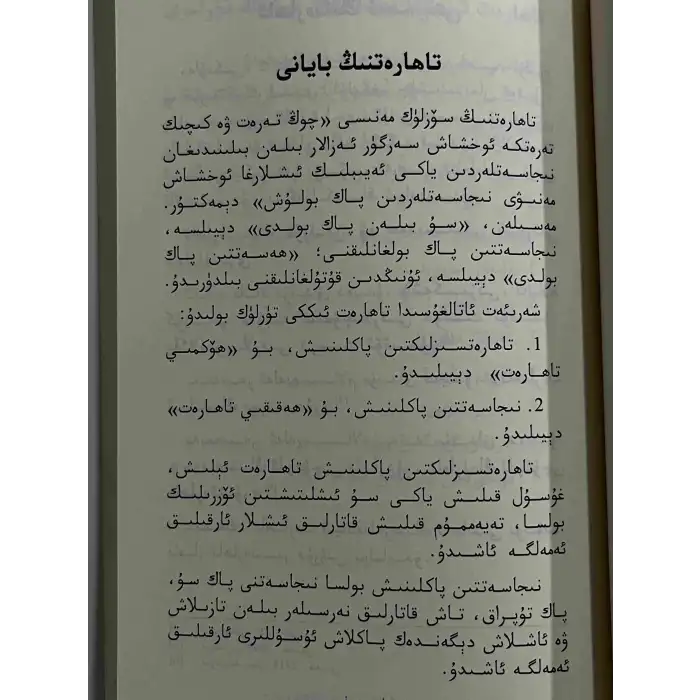 تاھارەتنىڭ بايانى
تاھارەتنىڭ سۆزلۈك مەنىسى «چوڭ تەرەت ۋە كىچىك
تەرەتكە ئوخشاش سەزگۈر ئەزالار بىلەن بىلىنىدىغان
نىجاسەتلەردىن ياكى ئەيىبلىك ئىشلارغا ئوخشاش
مەنىۋى نىجاسەتلەردىن پاك بولۇش» دېمەكتۇر.
مەسىلەن، «سۇ بىلەن پاك بولدى» دېيىلسە،
نىجاسەتتىن پاك بولغانلىقنى؛ «ھەسەتتىن پاك
بولدى» دېيىلسە، ئۇنىڭدىن قۇتۇلغانلىقنى بىلدۈرىدۇ.
شەرىئەت ئاتالغۇسىدا تاھارەت ئىككى تۈرلۈك بولىدۇ:
1. تاھارەتسىزلىكتىن پاكلىنىش، بۇ «ھۆكمىي
تاھارەت» دېيىلىدۇ.
2. نىجاسەتتىن پاكلىنىش، بۇ «ھەقىقىي تاھارەت»
دېيىلىدۇ.
تاھارەتسىزلىكتىن پاكلىنىش تاھارەت ئېلىش،
غۇسۇل قىلىش ياكى سۇ ئىشلىتىشتىن ئۆزرىلىك
بولسا، تەيەممۇم قىلىش قاتارلىق ئىشلار ئارقىلىق
ئەمەلگە ئاشىدۇ.
نىجاسەتتىن پاكلىنىش بولسا نىجاسەتنى پاك سۇ،
پاك تۇپراق، تاش قاتارلىق نەرسىلەر بىلەن تازىلاش
ۋە ئاشلاش دېگەندەك پاكلاش ئۇسۇللىرى ئارقىلىق
ئەمەلگە ئاشىدۇ.